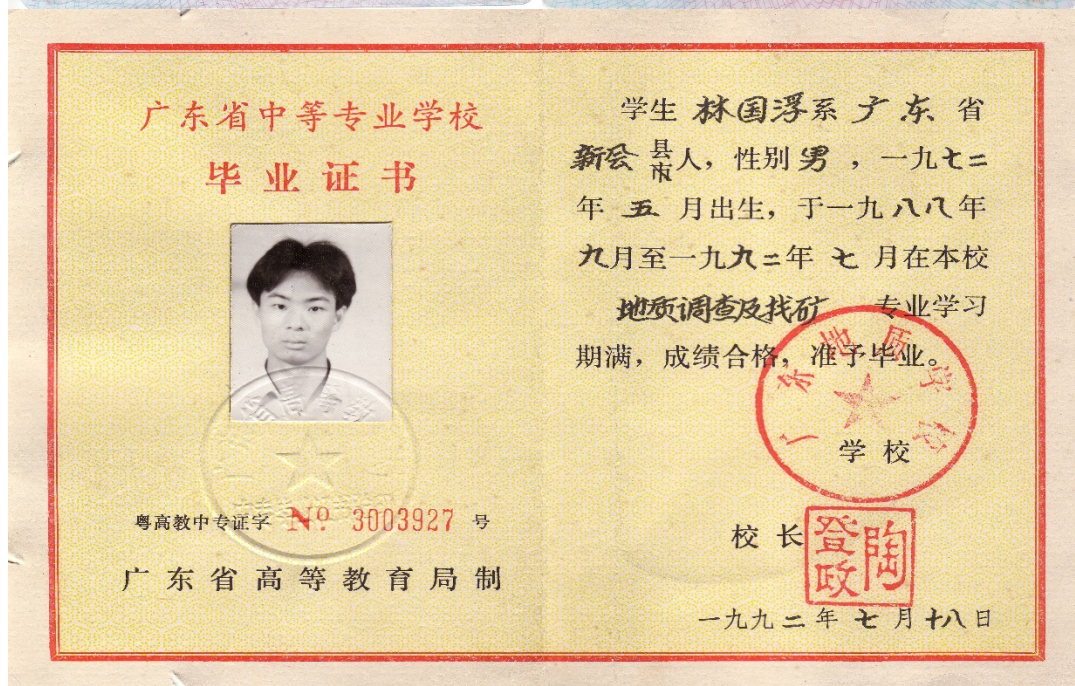 广东省中等专业学校
毕业证书
粤高教中专证字 № 3003927 号
广东省高等教育局制
学生 林国浮系 广东 省
新会 县市人，性别 男 ，一九七二
年 五 月出生，于一九八八年
九月至一九九二年 七 月在本校
地质调查及找矿 专业学习
期满，成绩合格，准予毕业。
广东地质学校
学校
校长
陶登政
一九九二年七月十八日